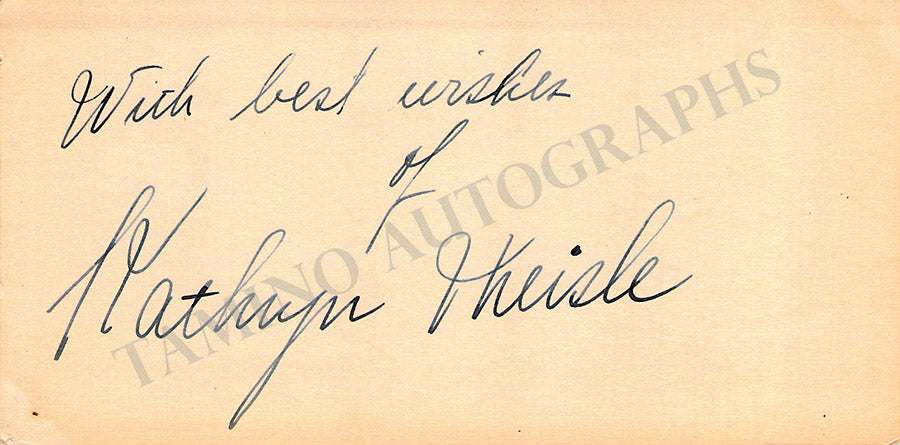 With best wishes
of
Kathryn Meisle
TAMINO AUTOGRAPHS